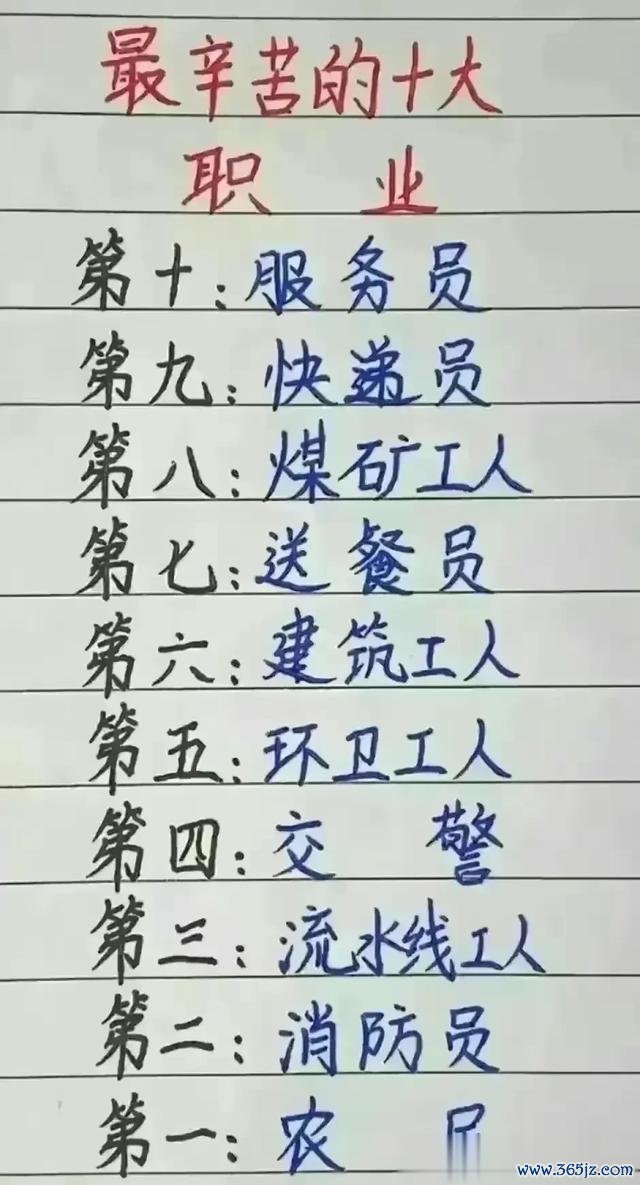 最辛苦的十大
职业
第十：服务员
第九：快递员
第八：煤矿工人
第七：送餐员
第六：建筑工人
第五：环卫工人
第四：交警
第三：流水线工人
第二：消防员
第一：农
www.365jz.com